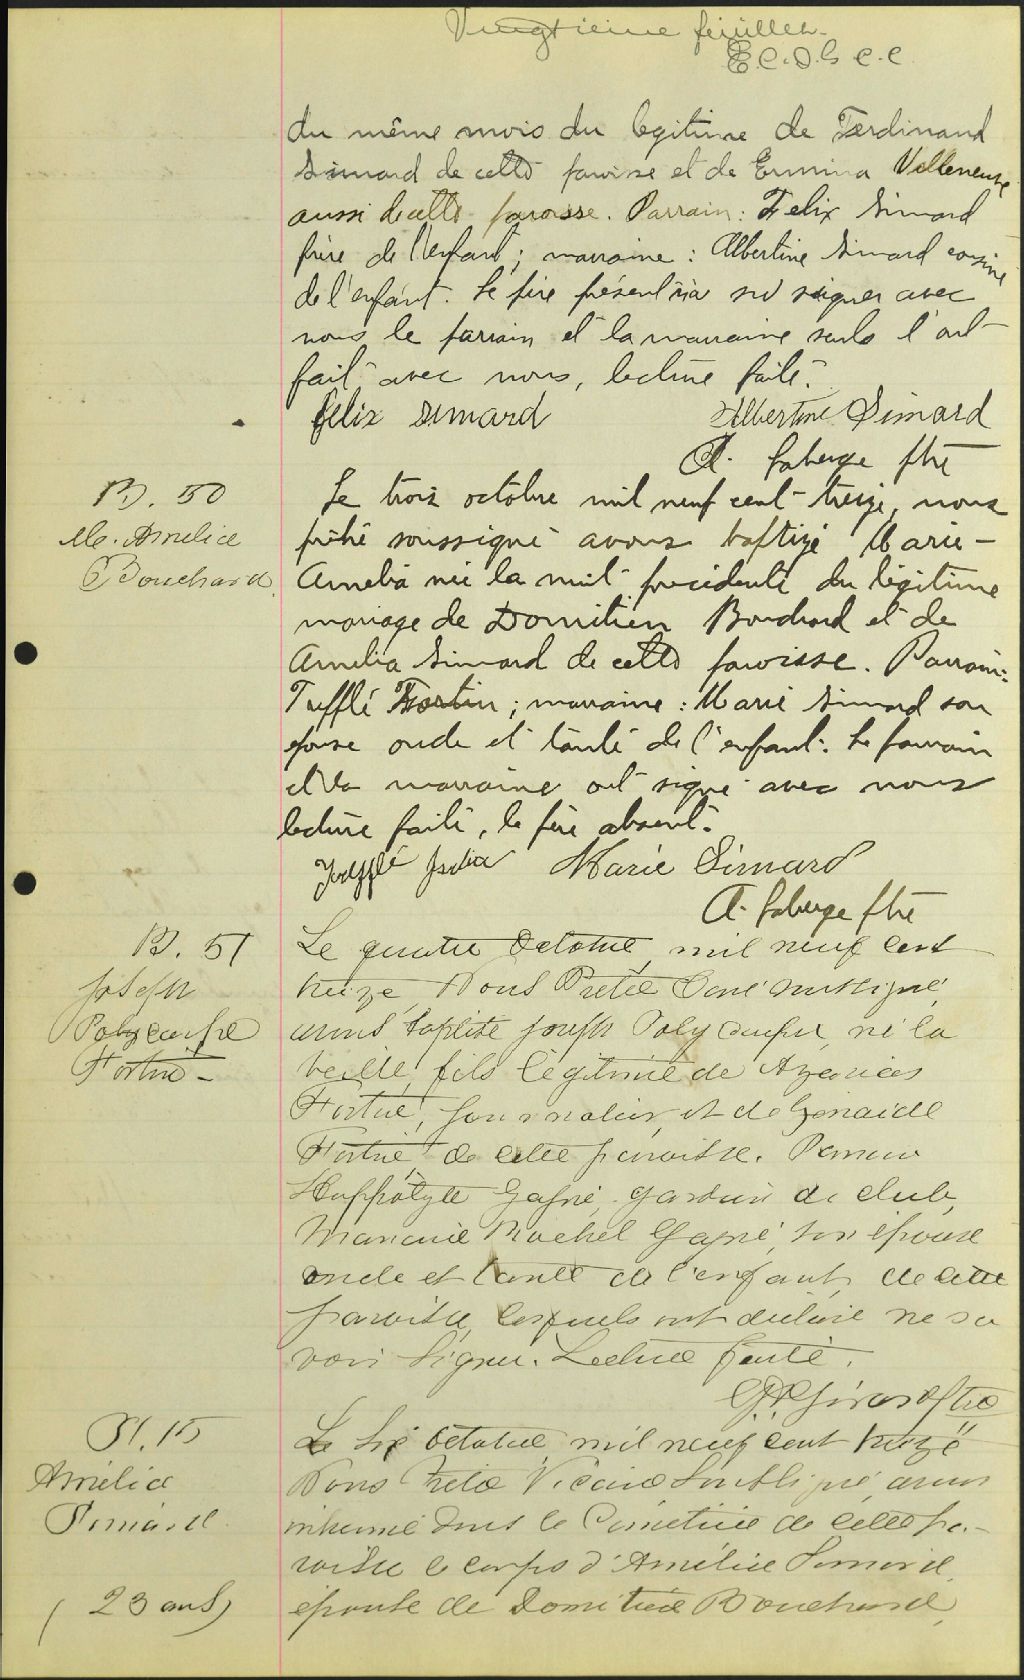 Vingtième feuillet.
E.C.D.S C.C.
du même mois du legitime de Ferdinand
Simard de cette paroisse et de Ermina Villeneuve
aussi de cette paroisse. Parrain: Felix Simard
frère de l'enfant; marraine: Albertine Simard cousine
de l'enfant. Le père présent n'a su signer avec
nous le parrain et la marraine seuls l'ont
fait avec nous, lecture faite.
felix simard
Albertine Simard
A. Laberge ptre
B. 50
M. Amelia
Bouchard
Le trois octobre mil neuf cent treize, nous
prêtre soussigné avons baptizé Marie-
Amelia née la nuit precedente du légitime
mariage de Domitien Bouchard et de
Amelia Simard de cette paroisse. Parrain:
Tufflé Fortin; marraine: Marie Simard son
epouse oncle et tante de l'enfant. Le parrain
et la marraine ont signé avec nous
lecture faite, le père absent.
Marie Simard
A. Laberge ptre
B. 51
Joseph
Polycarpe
Fortin -
Le quatre Octobre mil neuf cent
treize Nous Prêtre Curé soussigné,
avons baptisé Joseph Polycarpe, né la
veille, fils légitime de Azarias
Fortin, journalier, et de Zénaide
Fortin de cette paroisse. Parrain
Huppolyte Gagné, gardien de club,
Marraine Rachel Gagné, son épouse
oncle et tante de l'enfant, de cette
paroisse, lesquels ont déclaré ne sa
voir signer. Lecture faite.
Girard ptre
S. 15
Amélia
Simard
(23 ans)
Le Six Octobre mil neuf cent treize
Nous Prêtre Vicaire Soussigné, avons
inhumé dans le Cimetière de cette pa-
roisse le corps d'Amélia Simard,
épouse de Domitien Bouchard,